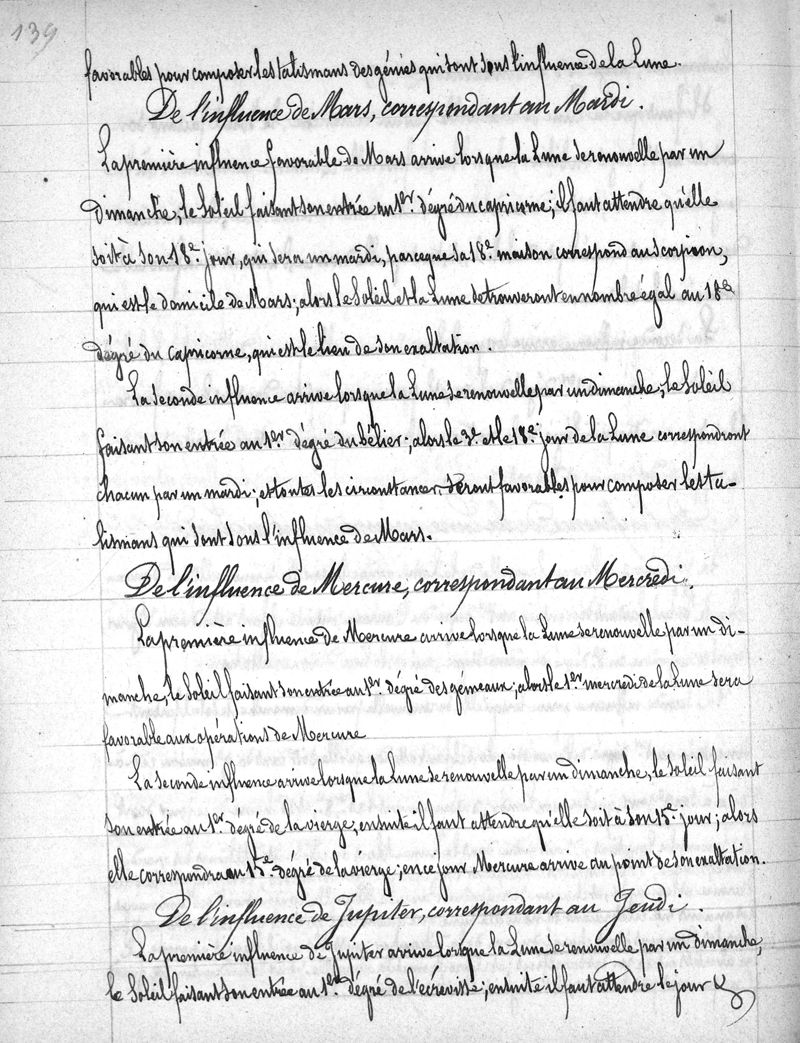 139
favorables pour composer les talismans des génies qui sont sous l'influence de la Lune.
De l'influence de Mars, correspondant au Mardi.
La première influence favorable de Mars arrive lorsque la Lune se renouvelle par un
dimanche, le Soleil faisant son entrée au 1er. dégré du capricorne; il faut attendre qu'elle
soit à son 18e. jour, qui sera un mardi, parceque sa 18e. maison correspond au scorpion,
qui est le domicile de Mars; alors le Soleil et la Lune se trouveront en nombre égal au 18e
dégré du capricorne, qui est le lieu de son exaltation.
La seconde influence arrive lorsque la Lune se renouvelle par un dimanche, le Soleil
faisant son entrée au 1er dégré du bélier; alors le 3e. et le 18e. jour de la Lune correspondront
chacun par un mardi; et toutes les circonstances seront favorables pour composer les ta-
lismans qui sont sous l'influence de Mars.
De l'influence de Mercure, correspondant au Mercredi.
La première influence de Mercure arrive lorsque la Lune se renouvelle par un di-
manche, le Soleil faisant son entrée au 1er. dégré des gémeaux; alors le 1er mercredi de la Lune sera
favorable aux opérations de Mercure
La seconde influence arrive lorsque la Lune se renouvelle par un dimanche, le soleil faisant
son entrée au 1er. dégré de la vierge; ensuite il faut attendre qu'elle soit à son 15e. jour; alors
elle correspondra au 15e. dégré de la vierge; en ce jour Mercure arrive au point de son exaltation.
De l'influence de Jupiter, correspondant au Jeudi.
La première influence de Jupiter arrive lorsque la Lune se renouvelle par un dimanche,
le Soleil faisant son entrée au 1er dégré de l'écrévisse; ensuite il faut attendre le jour